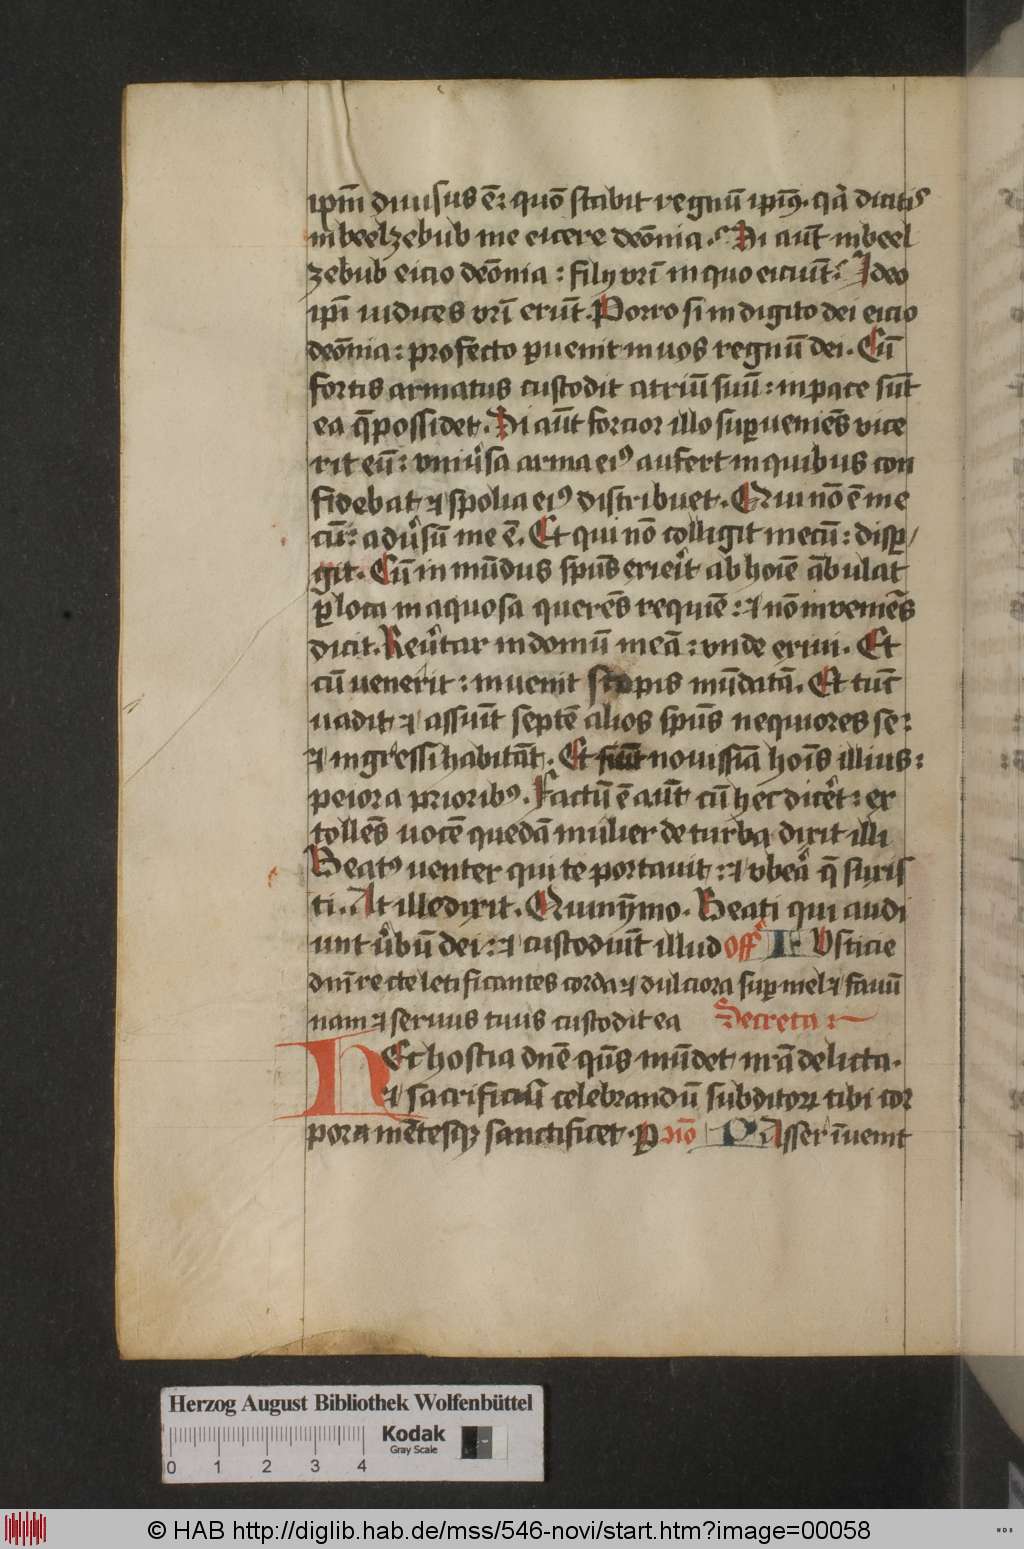 ip̄m diuisus ē: quō stabit regnū ipiꝰ. qa dicitis
in beelzebub me eicere demōia. Si aūt in beel
zebub eicio demōia: filij vrī in quo eiciūt? Ideo
ipī iudices vrī erūt. Porro si in digito dei eicio
demōia: profecto ꝑuenit in uos regnū dei. Cū
fortis armatus custodit atriū suū: in pace sūt
ea q̄ possidet. Si aūt forcior illo suꝑueniēs vice
rit eū: vniūsa arma eiꝰ aufert in quibus con
fidebat ⁊ spolia eiꝰ distribuet. Qui nō ē me
cū: adūsū me ē. Et qui nō colligit mecū: disꝑ
git. Cū inmūdus spūs exierit ab hoīe ābulat
ꝑ loca inaquosa querēs requiē: ⁊ nō inueniēs
dicit. Reūtar in domū meā: vnde exiui. Et
cū uenerit: inuenit scopis mūdatā. Et tūc
uadit ⁊ assuīt septē alios spūs nequiores se:
⁊ ingressi habitāt. Et fiūt nouissīa hoīs illius:
peiora prioribꝰ. Factū ē aūt cū hec dicēt: ex
tollēs uocē quedā mulier de turba dixit illi
Beatꝰ uenter qui te portauit: ⁊ vbeā q̄ suxis
ti. At ille dixit. Quinȳmo. Beati qui audi
unt ūbū dei: ⁊ custodiūt illud off̄ Iusticie
dnī recte letificantes corda ⁊ dulciora suꝑ mel ⁊ fauū
nam ⁊ seruus tuus custodit ea Secreta:
Hec hostia dnē qūs mūdet nrā delicta.
⁊ sacrificiū celebrandū subditoꝝ tibi cor
pora mētesqꝫ sanctificet. 9nō Passer īuenit
Herzog August Bibliothek Wolfenbüttel
Kodak
Gray Scale
0 1 2 3 4
© HAB http://diglib.hab.de/mss/546-novi/start.htm?image=00058